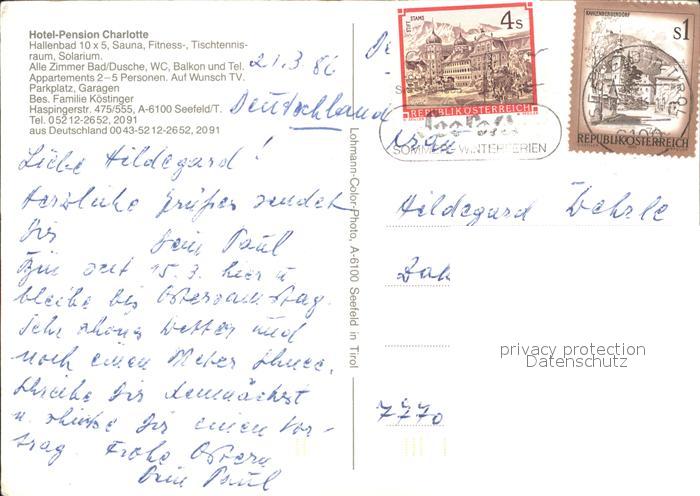 Hotel-Pension Charlotte
Hallenbad 10 x 5, Sauna, Fitness-, Tischtennis-
raum, Solarium.
Alle Zimmer Bad/Dusche, WC, Balkon und Tel.
Appartements 2–5 Personen. Auf Wunsch TV.
Parkplatz, Garagen
Bes. Familie Köstinger
Haspingerstr. 475/555, A-6100 Seefeld/T.
Tel. 05212-2652, 2091
aus Deutschland 0043-5212-2652, 2091
21.3.86
Deutschland
Liebe Hildegard!
Herzliche Grüße sendet
Dir Dein Paul
Bin seit 15.3. hier u
bleibe bis Ostersamstag.
Sehr schönes Wetter und
noch einen Meter Schnee.
Schreibe Dir demnächst
u. schicke Dir einen Vor-
trag. Frohe Ostern
Dein Paul
Lohmann-Color-Photo, A-6100 Seefeld in Tirol
STIFT STAMS
4s
REPUBLIK ÖSTERREICH
KAHLENBERGERDORF
s1
REPUBLIK ÖSTERREICH
6100
SOMMER- WINTERFERIEN
Frau
Hildegard
7770
privacy protection
Datenschutz